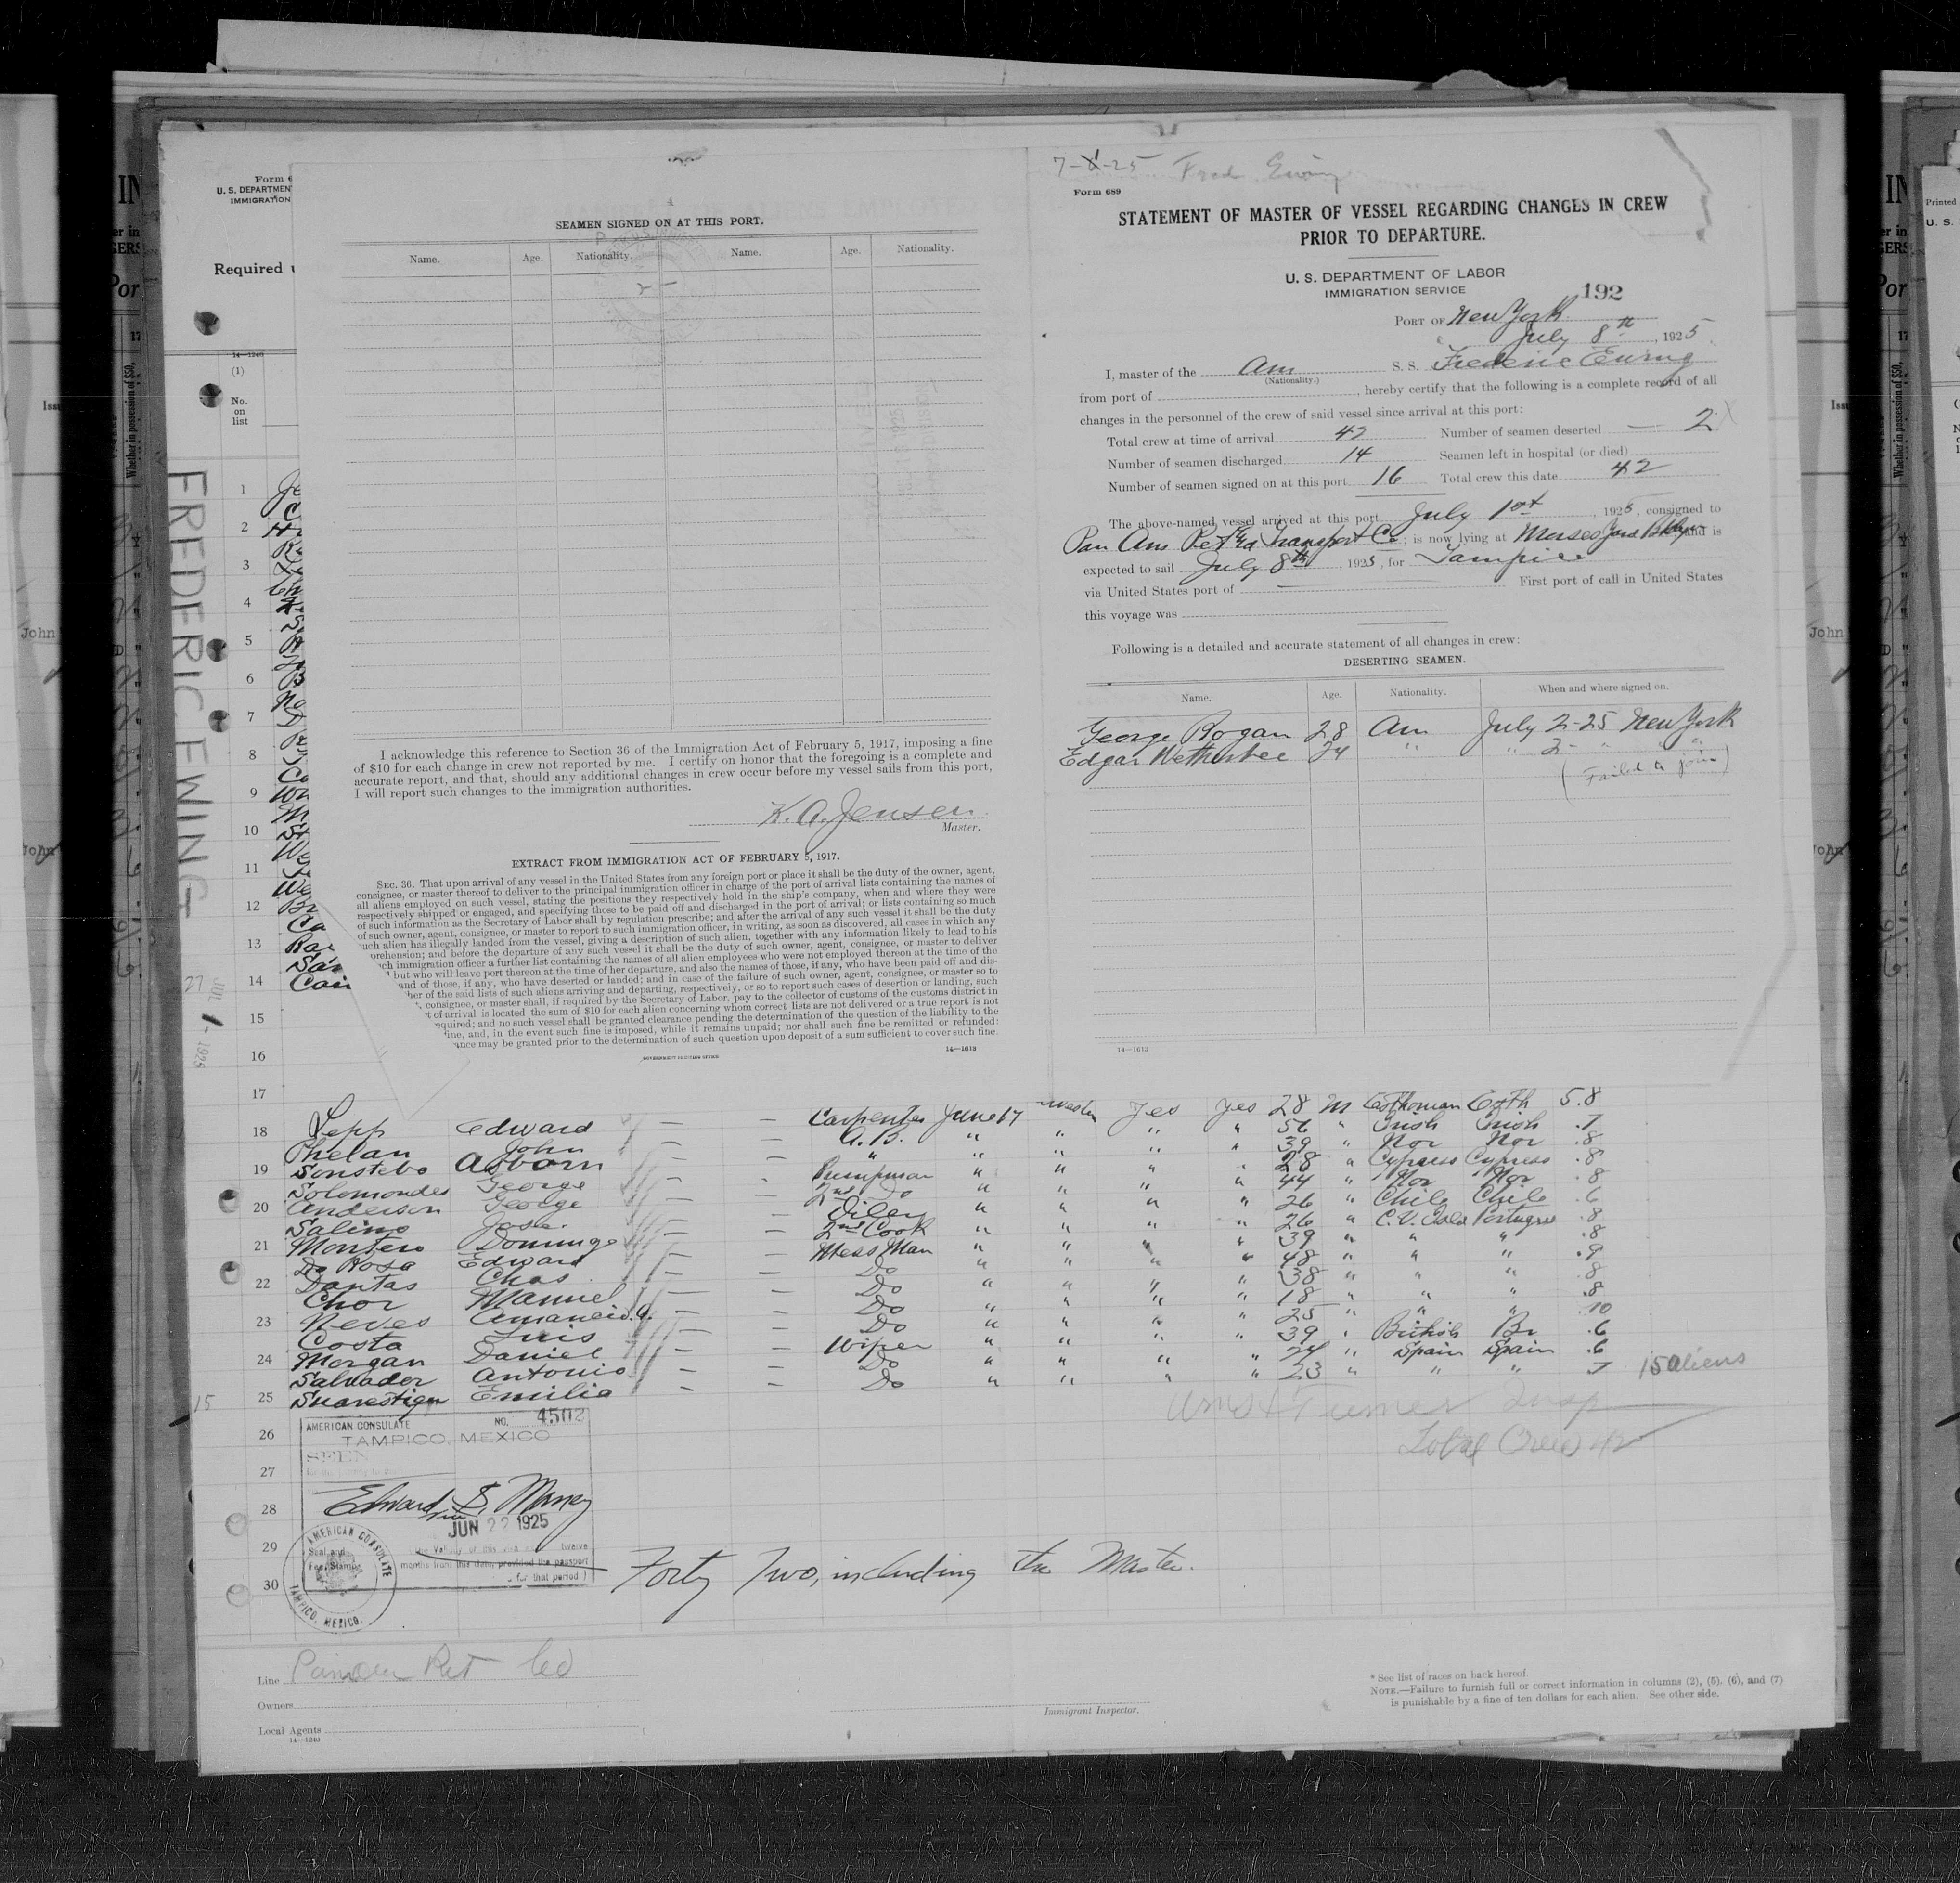 Form 6
U. S. DEPARTMEN
IMMIGRATION
Required
14—1240
(1)
No.
on
list
FREDERIC EWING
SEAMEN SIGNED ON AT THIS PORT.
Name. Age. Nationality. Name. Age. Nationality.
I acknowledge this reference to Section 36 of the Immigration Act of February 5, 1917, imposing a fine
of $10 for each change in crew not reported by me. I certify on honor that the foregoing is a complete and
accurate report, and that, should any additional changes in crew occur before my vessel sails from this port,
I will report such changes to the immigration authorities.
K. A. Jensen
Master.
EXTRACT FROM IMMIGRATION ACT OF FEBRUARY 5, 1917.
SEC. 36. That upon arrival of any vessel in the United States from any foreign port or place it shall be the duty of the owner, agent,
consignee, or master thereof to deliver to the principal immigration officer in charge of the port of arrival lists containing the names of
all aliens employed on such vessel, stating the positions they respectively hold in the ship's company, when and where they were
respectively shipped or engaged, and specifying those to be paid off and discharged in the port of arrival; or lists containing so much
of such information as the Secretary of Labor shall by regulation prescribe; and after the arrival of any such vessel it shall be the duty
of such owner, agent, consignee, or master to report to such immigration officer, in writing, as soon as discovered, all cases in which any
such alien has illegally landed from the vessel, giving a description of such alien, together with any information likely to lead to his
prehension; and before the departure of any such vessel it shall be the duty of such owner, agent, consignee, or master to deliver
ch immigration officer a further list containing the names of all alien employees who were not employed thereon at the time of the
l but who will leave port thereon at the time of her departure, and also the names of those, if any, who have been paid off and dis-
and of those, if any, who have deserted or landed; and in case of the failure of such owner, agent, consignee, or master so to
her of the said lists of such aliens arriving and departing, respectively, or so to report such cases of desertion or landing, such
, consignee, or master shall, if required by the Secretary of Labor, pay to the collector of customs of the customs district in
t of arrival is located the sum of $10 for each alien concerning whom correct lists are not delivered or a true report is not
equired; and no such vessel shall be granted clearance pending the determination of the question of the liability to the
ine, and, in the event such fine is imposed, while it remains unpaid; nor shall such fine be remitted or refunded:
ance may be granted prior to the determination of such question upon deposit of a sum sufficient to cover such fine.
GOVERNMENT PRINTING OFFICE 14—1613
7-8-25 Fred Ewing
Form 689
STATEMENT OF MASTER OF VESSEL REGARDING CHANGES IN CREW
PRIOR TO DEPARTURE.
U. S. DEPARTMENT OF LABOR
IMMIGRATION SERVICE
192
PORT OF New York
July 8th, 1925.
I, master of the Am S. S. Frederic Ewing
(Nationality.)
from port of , hereby certify that the following is a complete record of all
changes in the personnel of the crew of said vessel since arrival at this port:
Total crew at time of arrival 42 Number of seamen deserted — 2
Number of seamen discharged 14 Seamen left in hospital (or died)
Number of seamen signed on at this port 16 Total crew this date 42
The above-named vessel arrived at this port July 1st, 1925, consigned to
Pan Am Pet & Transport Co; is now lying at Morses Yard Bklyn and is
expected to sail July 8th, 1925, for Tampico
via United States port of — First port of call in United States
this voyage was
Following is a detailed and accurate statement of all changes in crew:
DESERTING SEAMEN.
Name. Age. Nationality. When and where signed on.
George Rogan 28 Am July 2-25 New York
Edgar Wetherbee 24 " " 2- " " "
(Failed to join)
14—1613
1
2
3
4
5
6
7
8
9
10
11
12
13
14
15
16
17
27 JUL 1 - 1925
Lepp Edward — — Carpenter June 17 yes yes 28 M Esthonian Esth 5.8
18 Phelan John — — A.B. " " " " 56 " Irish Irish .7
Sonstebo Asborn — — " " " " " 39 " Nor Nor .8
19 Solomondes George — — Pumpman " " " " 28 " Cypress Cypress .8
20 Anderson George — — 2nd Do " " " " 44 " Nor Nor .8
Salino Jose — — Oiler " " " " 26 " Chile Chile .6
21 Montero Domingo — — 2nd Cook " " " " 26 " C.V. Isls Portugese .8
Da Rosa Edward — — Mess Man " " " " 39 " " " .8
22 Dantas Chas — — Do " " " " 48 " " " .9
Chor Manuel — — Do " " " " 38 " " " .8
23 Neves Amancio. A. — — Do " " " " 18 " " " .8
Costa Luis — — Do " " " " 25 " " " .10
24 Morgan Daniel — — Wiper " " " " 39 " British Br .6
Salvador Antonio — — Do " " " " 24 " Spain Spain .6
25 Emilio — — Do " " " " 23 " " " 7 15 aliens
15
26
27
28
29
30
AMERICAN CONSULATE NO. 4502
TAMPICO, MEXICO
SEEN
Edward S. Maney
JUN 22 1925
The validity of this visa twelve
months from this date, provided the passport
for that period)
Seal and
Fee Stamp
AMERICAN CONSULATE
TAMPICO, MEXICO.
Turner Insp
Total Crew 42
Forty Two, including the Master.
Line Panam Pet Co
Owners
Local Agents
14—1240
Immigrant Inspector.
* See list of races on back hereof.
NOTE.—Failure to furnish full or correct information in columns (2), (5), (6), and (7)
is punishable by a fine of ten dollars for each alien. See other side.